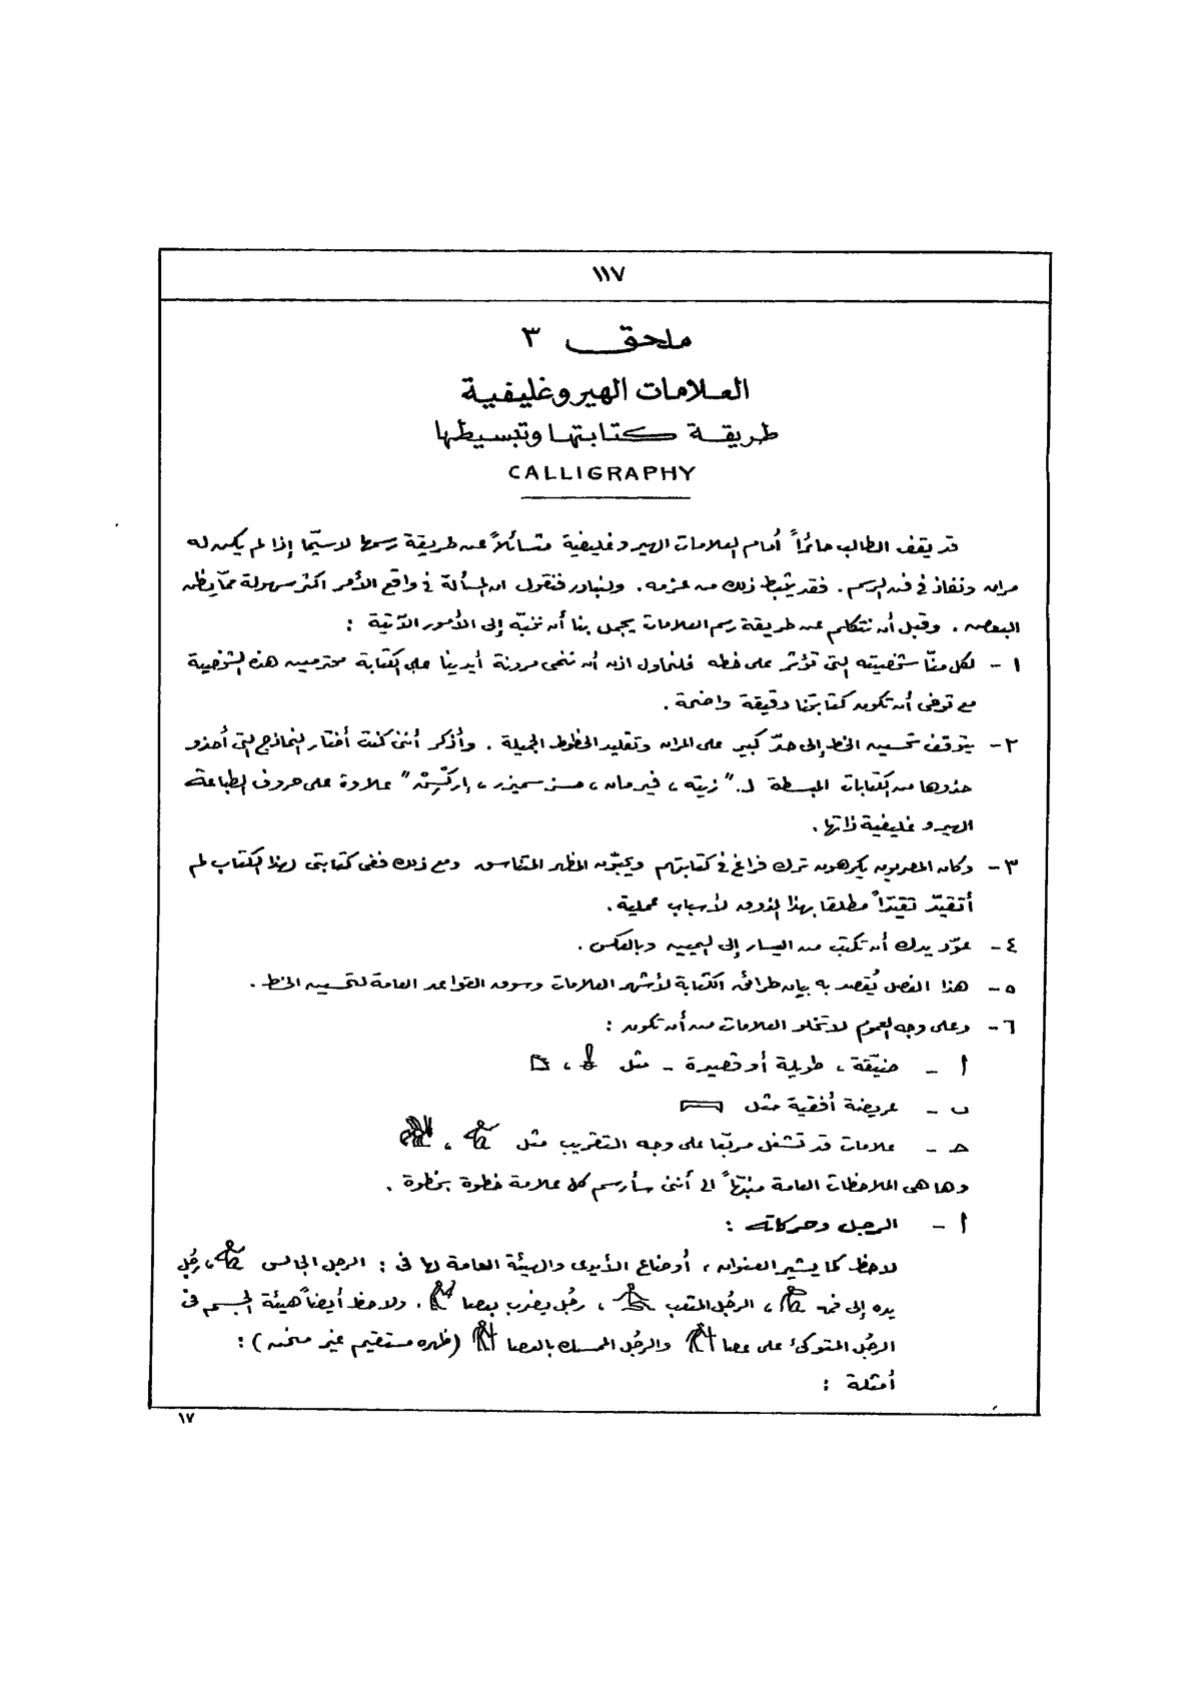 ١١٧
ملحق ٣
العلامات الهيروغليفية
طريقة كتابتها وتبسيطها
CALLIGRAPHY
قد يقف الطالب حائراً أمام العلامات الهيروغليفية متسائلاً عن طريقة رسمها لاسيّما إذا لم يكن له
مران ونفاذ في فن الرسم . فقد يثبط ذلك من عزمه . ولنبادر فنقول ان المسألة في واقع الأمر اكثر سهولة ممّا يظن
البعض . وقبل أن نتكلم عن طريقة رسم العلامات يجمل بنا أن ننبّه إلى الأمور الآتية :
١ - لكل منّا شخصيته التى تؤثر على خطه فلنحاول اذن أن ننمى مرونة أيدينا على الكتابة محترمين هذه الشخصية
مع توخى أن تكون كتابتنا دقيقة واضحة .
٢ - يتوقف تحسين الخط إلى حدّ كبير على المران وتقليد الخطوط الجميلة . وأذكر أننى كنت أختار النماذج التى أحذو
حذوها من الكتابات المبسطة لـ " زيته ، فيرمان ، مسز سميزر ، إركْسِنْ " علاوة على حروف الطباعة
الهيروغليفية ذاتها .
٣ - وكان المصريون يكرهون ترك فراغ في كتابتهم ويحبّون المظهر المتناسق ومع ذلك ففى كتابتى لهذا الكتاب لم
أتقيّد تقيّداً مطلقا بهذا الذوق لأسباب عملية .
٤ - عوّد يدك أن تكتب من اليسار إلى اليمين وبالعكس .
٥ - هذا الفصل يُقصد به بيان طرائق الكتابة لأشهر العلامات وسوق القواعد العامة لتحسين الخط .
٦ - وعلى وجه العموم لا تخلو العلامات من أن تكون :
أ - ضيّقة ، طويلة أو قصيرة - مثل ،
ب - عريضة أفقية مثل
جـ - علامات قد تشغل مربّعا على وجه التقريب مثل ،
وها هى الملاحظات العامة منبّهاً الى أننى سأرسم كل علامة خطوة بخطوة .
أ - الرجل وحركاته :
لاحظ كما يشير العنوان ، أوضاع الأيدى والهيئة العامة لها فى : الرجل الجالس ، رجُل
يده إلى فمه ، الرجُل المتعب ، رجُل يضرب بعصا . ولاحظ أيضاً هيئة الجسم فى
الرجُل المتوكئ على عصا والرجُل الممسك بالعصا (ظهره مستقيم غير منحن) :
أمثلة :
١٧